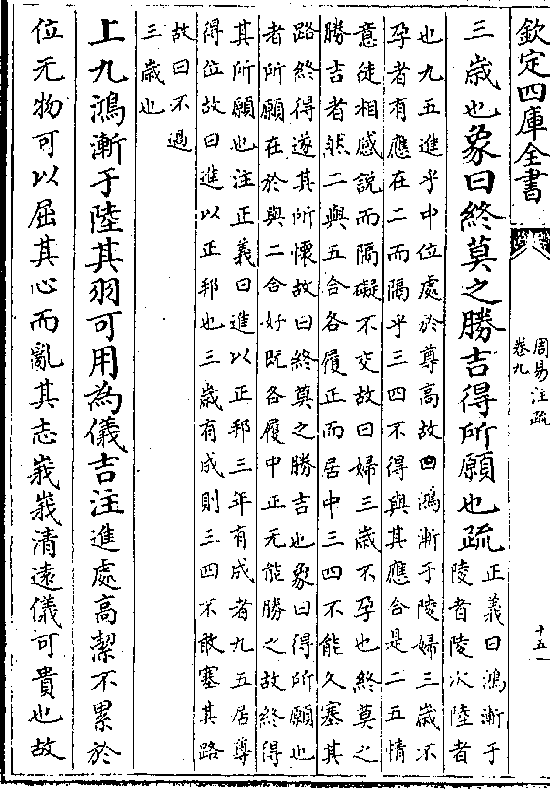 欽定四庫全書
周易注疏
卷九
十五
三歲也象曰終莫之勝吉得所願也疏
正義曰鴻漸于
陵者陵次陸者
也九五進乎中位處於尊高故曰鴻漸于陵婦三歲不
孕者有應在二而隔乎三四不得與其應合是二五情
意徒相感説而隔礙不交故曰婦三歲不孕也終莫之
勝吉者然二與五合各履正而居中三四不能久塞其
路終得遂其所懷故曰終莫之勝吉也象曰得所願也
者所願在於與二合好既各履中正无能勝之故終得
其所願也注正義曰進以正邦三年有成者九五居尊
得位故曰進以正邦也三歲有成則三四不敢塞其路
故曰不過
三歲也
上九鴻漸于陸其羽可用為儀吉注進處高潔不累於
位无物可以屈其心而亂其志峩峩清遠儀可貴也故